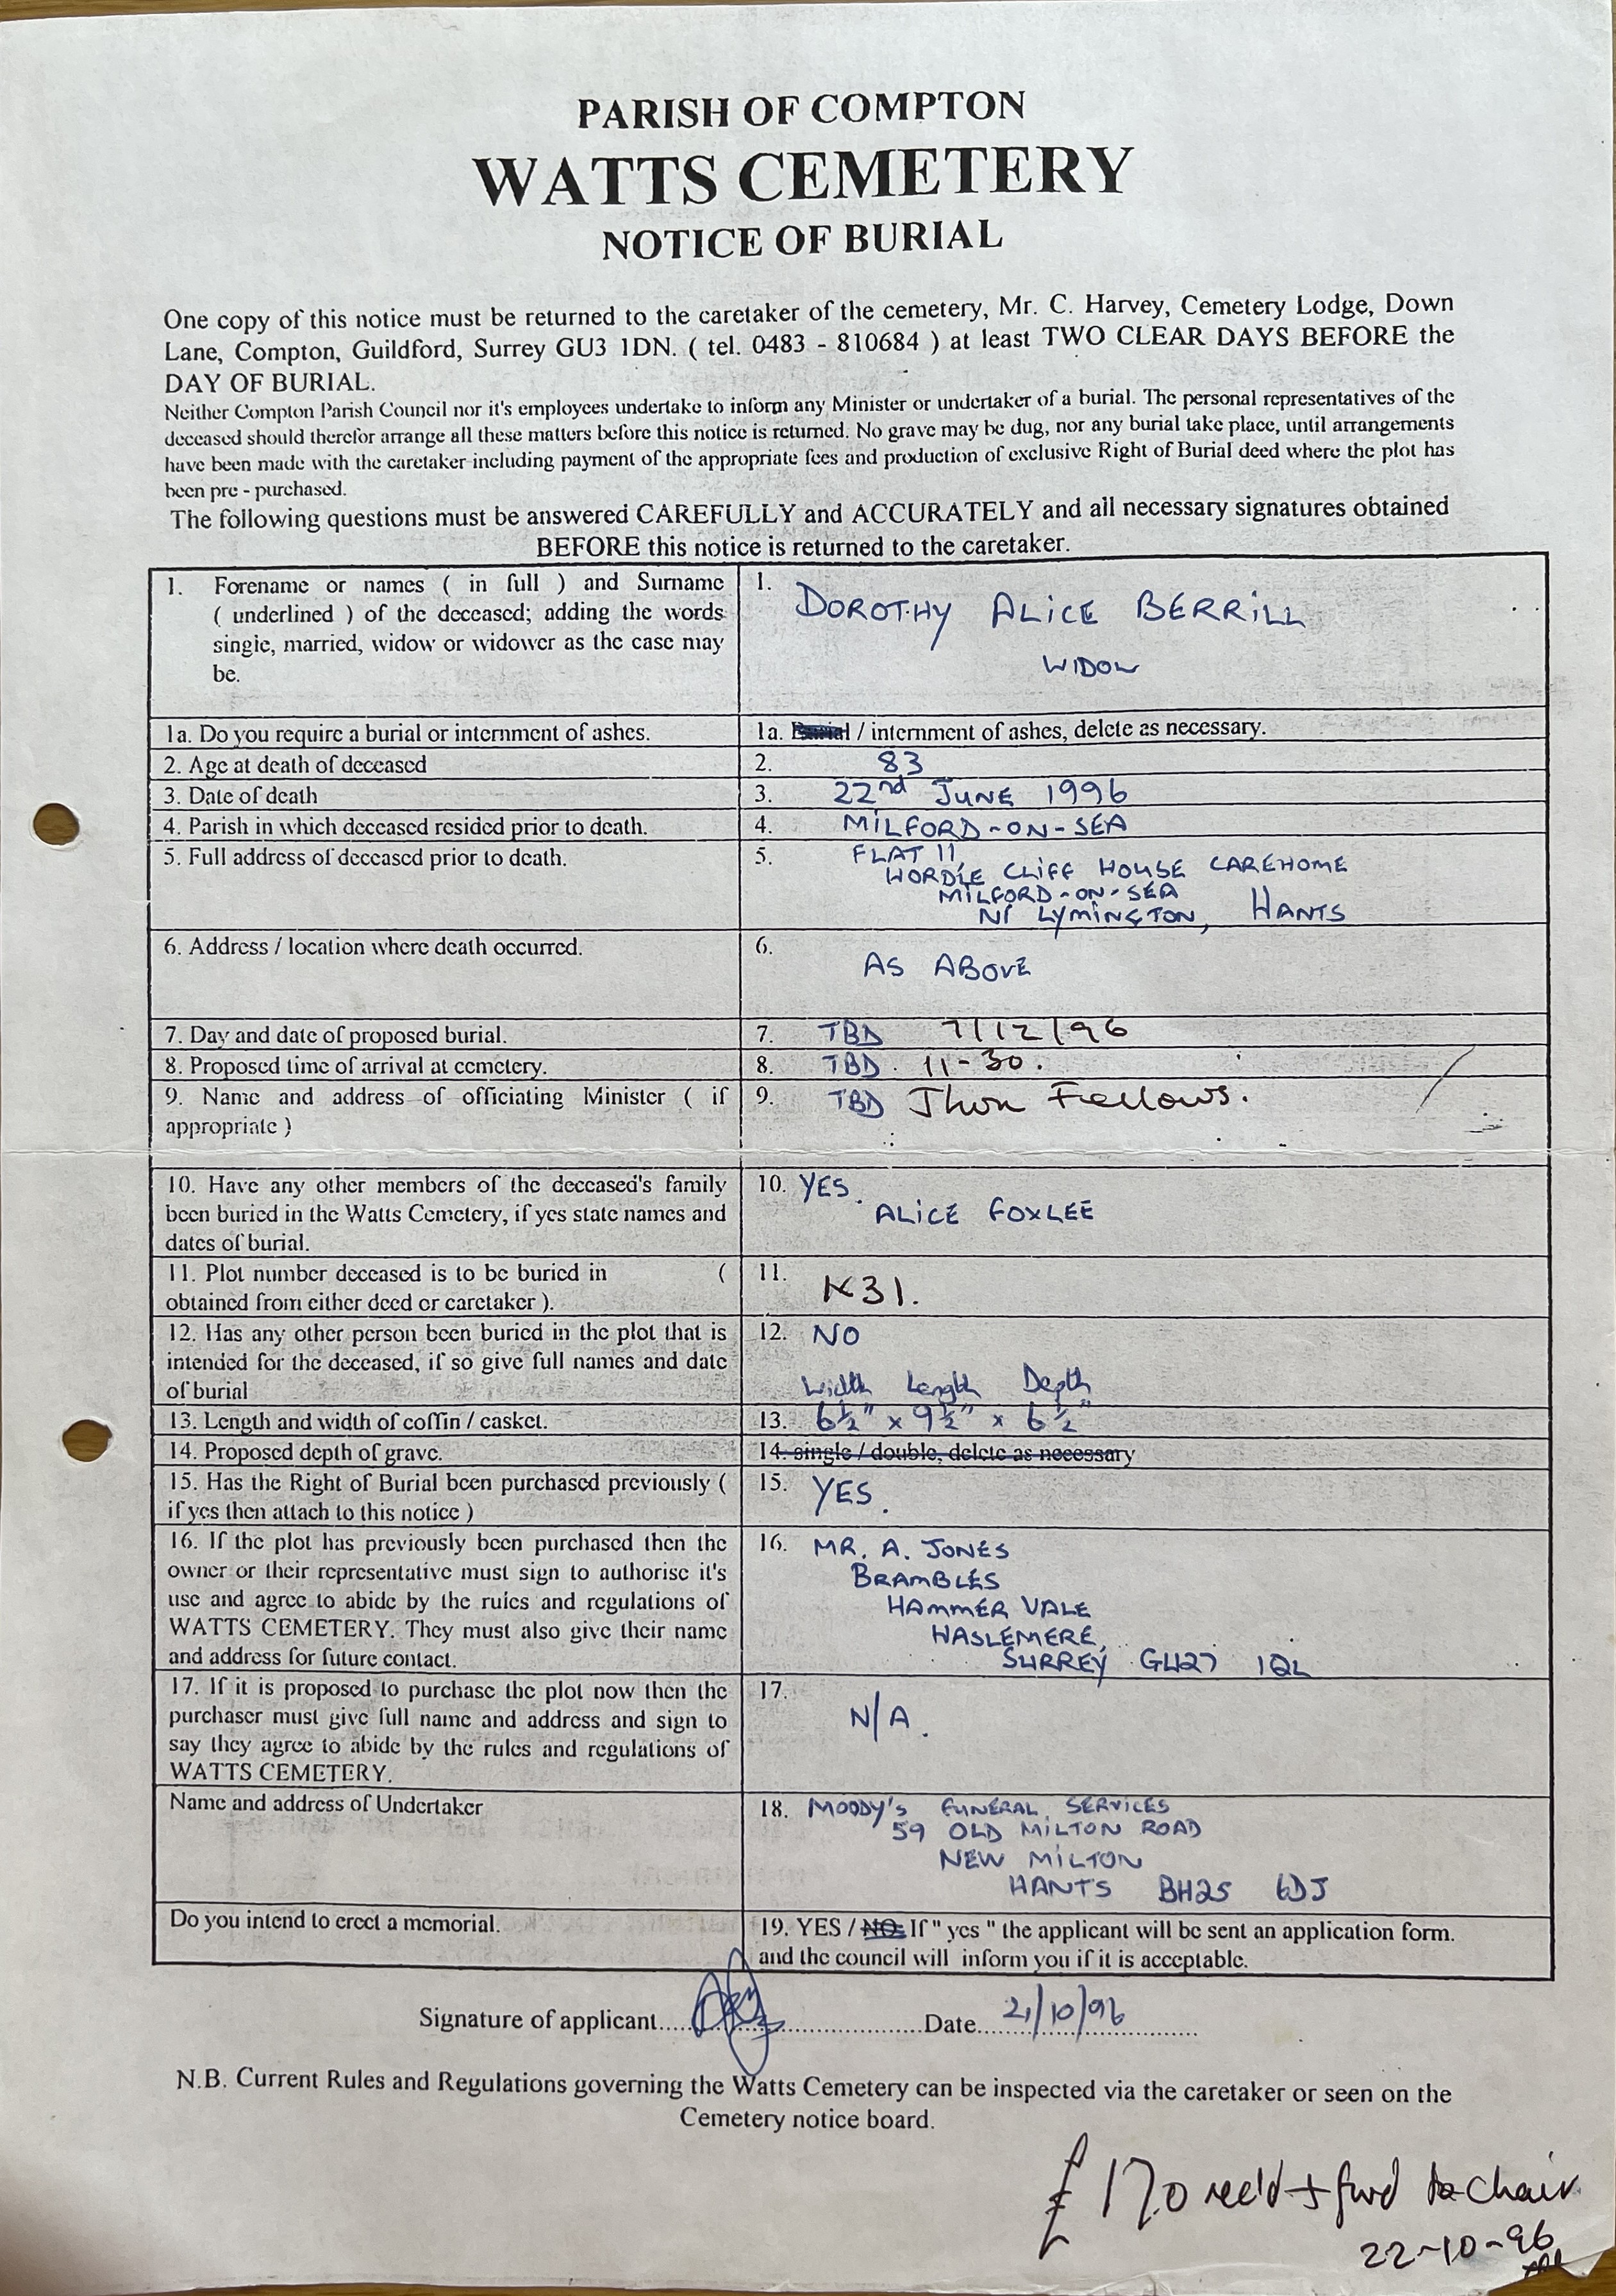 PARISH OF COMPTON
WATTS CEMETERY
NOTICE OF BURIAL
One copy of this notice must be returned to the caretaker of the cemetery, Mr. C. Harvey, Cemetery Lodge, Down
Lane, Compton, Guildford, Surrey GU3 1DN. ( tel. 0483 - 810684 ) at least TWO CLEAR DAYS BEFORE the
DAY OF BURIAL.
Neither Compton Parish Council nor it's employees undertake to inform any Minister or undertaker of a burial. The personal representatives of the
deceased should therefor arrange all these matters before this notice is returned. No grave may be dug, nor any burial take place, until arrangements
have been made with the caretaker including payment of the appropriate fees and production of exclusive Right of Burial deed where the plot has
been pre - purchased.
The following questions must be answered CAREFULLY and ACCURATELY and all necessary signatures obtained
BEFORE this notice is returned to the caretaker.
1. Forename or names ( in full ) and Surname
( underlined ) of the deceased; adding the words
single, married, widow or widower as the case may
be.
1. DOROTHY ALICE BERRILL
WIDOW
1a. Do you require a burial or internment of ashes.
1a. Burial / internment of ashes, delete as necessary.
2. Age at death of deceased
2. 83
3. Date of death
3. 22nd JUNE 1996
4. Parish in which deceased resided prior to death.
4. MILFORD-ON-SEA
5. Full address of deceased prior to death.
5. FLAT 11,
HORDLE CLIFF HOUSE CAREHOME
MILFORD-ON-SEA
Nr LYMINGTON, HANTS
6. Address / location where death occurred.
6. AS ABOVE
7. Day and date of proposed burial.
7. TBD 7/12/96
8. Proposed time of arrival at cemetery.
8. TBD. 11-30.
9. Name and address of officiating Minister ( if
appropriate )
9. TBD Jhon Fellows.
10. Have any other members of the deceased's family
been buried in the Watts Cemetery, if yes state names and
dates of burial.
10. YES.
ALICE FOXLEE
11. Plot number deceased is to be buried in (
obtained from either deed or caretaker ).
11. K31.
12. Has any other person been buried in the plot that is
intended for the deceased, if so give full names and date
of burial
12. NO
Width Length Depth
13. Length and width of coffin / casket.
13. 6½" x 9½" x 6½"
14. Proposed depth of grave.
14. single / double, delete as necessary
15. Has the Right of Burial been purchased previously (
if yes then attach to this notice )
15. YES.
16. If the plot has previously been purchased then the
owner or their representative must sign to authorise it's
use and agree to abide by the rules and regulations of
WATTS CEMETERY. They must also give their name
and address for future contact.
16. MR. A. JONES
BRAMBLES
HAMMER VALE
HASLEMERE,
SURREY GU27 1QL
17. If it is proposed to purchase the plot now then the
purchaser must give full name and address and sign to
say they agree to abide by the rules and regulations of
WATTS CEMETERY.
17. N/A.
Name and address of Undertaker
18. MOODY'S FUNERAL SERVICES
59 OLD MILTON ROAD
NEW MILTON
HANTS BH25 6DJ
Do you intend to erect a memorial.
19. YES / NO. If " yes " the applicant will be sent an application form.
and the council will inform you if it is acceptable.
Signature of applicant.............................Date 21/10/96
N.B. Current Rules and Regulations governing the Watts Cemetery can be inspected via the caretaker or seen on the
Cemetery notice board.
£170 rec'd + fwd to Chair
22-10-96